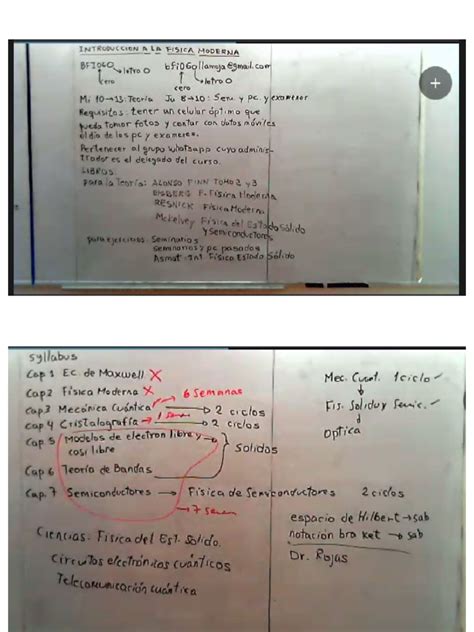 INTRODUCCION A LA FISICA MODERNA
BFI06O letra O bfi06Ollamoja@gmail.com
cero cero letra O
Mi 10→13: Teoría Ju 8→10: Sem. y pc. y examenes
Requisitos: tener un celular óptimo que
pueda tomar fotos y contar con datos móviles
el día de las pc y exámenes.
Pertenecer al grupo Whatsapp cuyo adminis-
trador es el delegado del curso.
LIBROS
para la teoría: ALONSO FINN TOMO 2 y 3
EISBERG F. Física Moderna
RESNICK: Física Moderna
McKelvey Física del Estado Sólido
y Semiconductores
para ejercicios: Seminarios
seminarios y pc pasados
Asmat: Int. Física Estado Sólido
syllabus
Cap 1 Ec. de Maxwell X
Cap 2 Física Moderna X
6 Semanas
Cap 3 Mecánica Cuántica → 2 ciclos
1 sem
cap 4 Cristalografía → 2 ciclos
Cap 5 Modelos de electron libre y
casi libre
Solidos
Cap 6 Teoría de Bandas
Cap. 7 Semiconductores → Física de Semiconductores 2 ciclos
→ 7 sem
Mec. Cuant. 1 ciclo
Fis. Solido y Semic.
Optica
espacio de Hilbert → sab
notación bra ket → sab
Dr. Rojas
Ciencias: Física del Est. Solido.
Circuitos electrónicos cuánticos
Telecomunicación cuántica